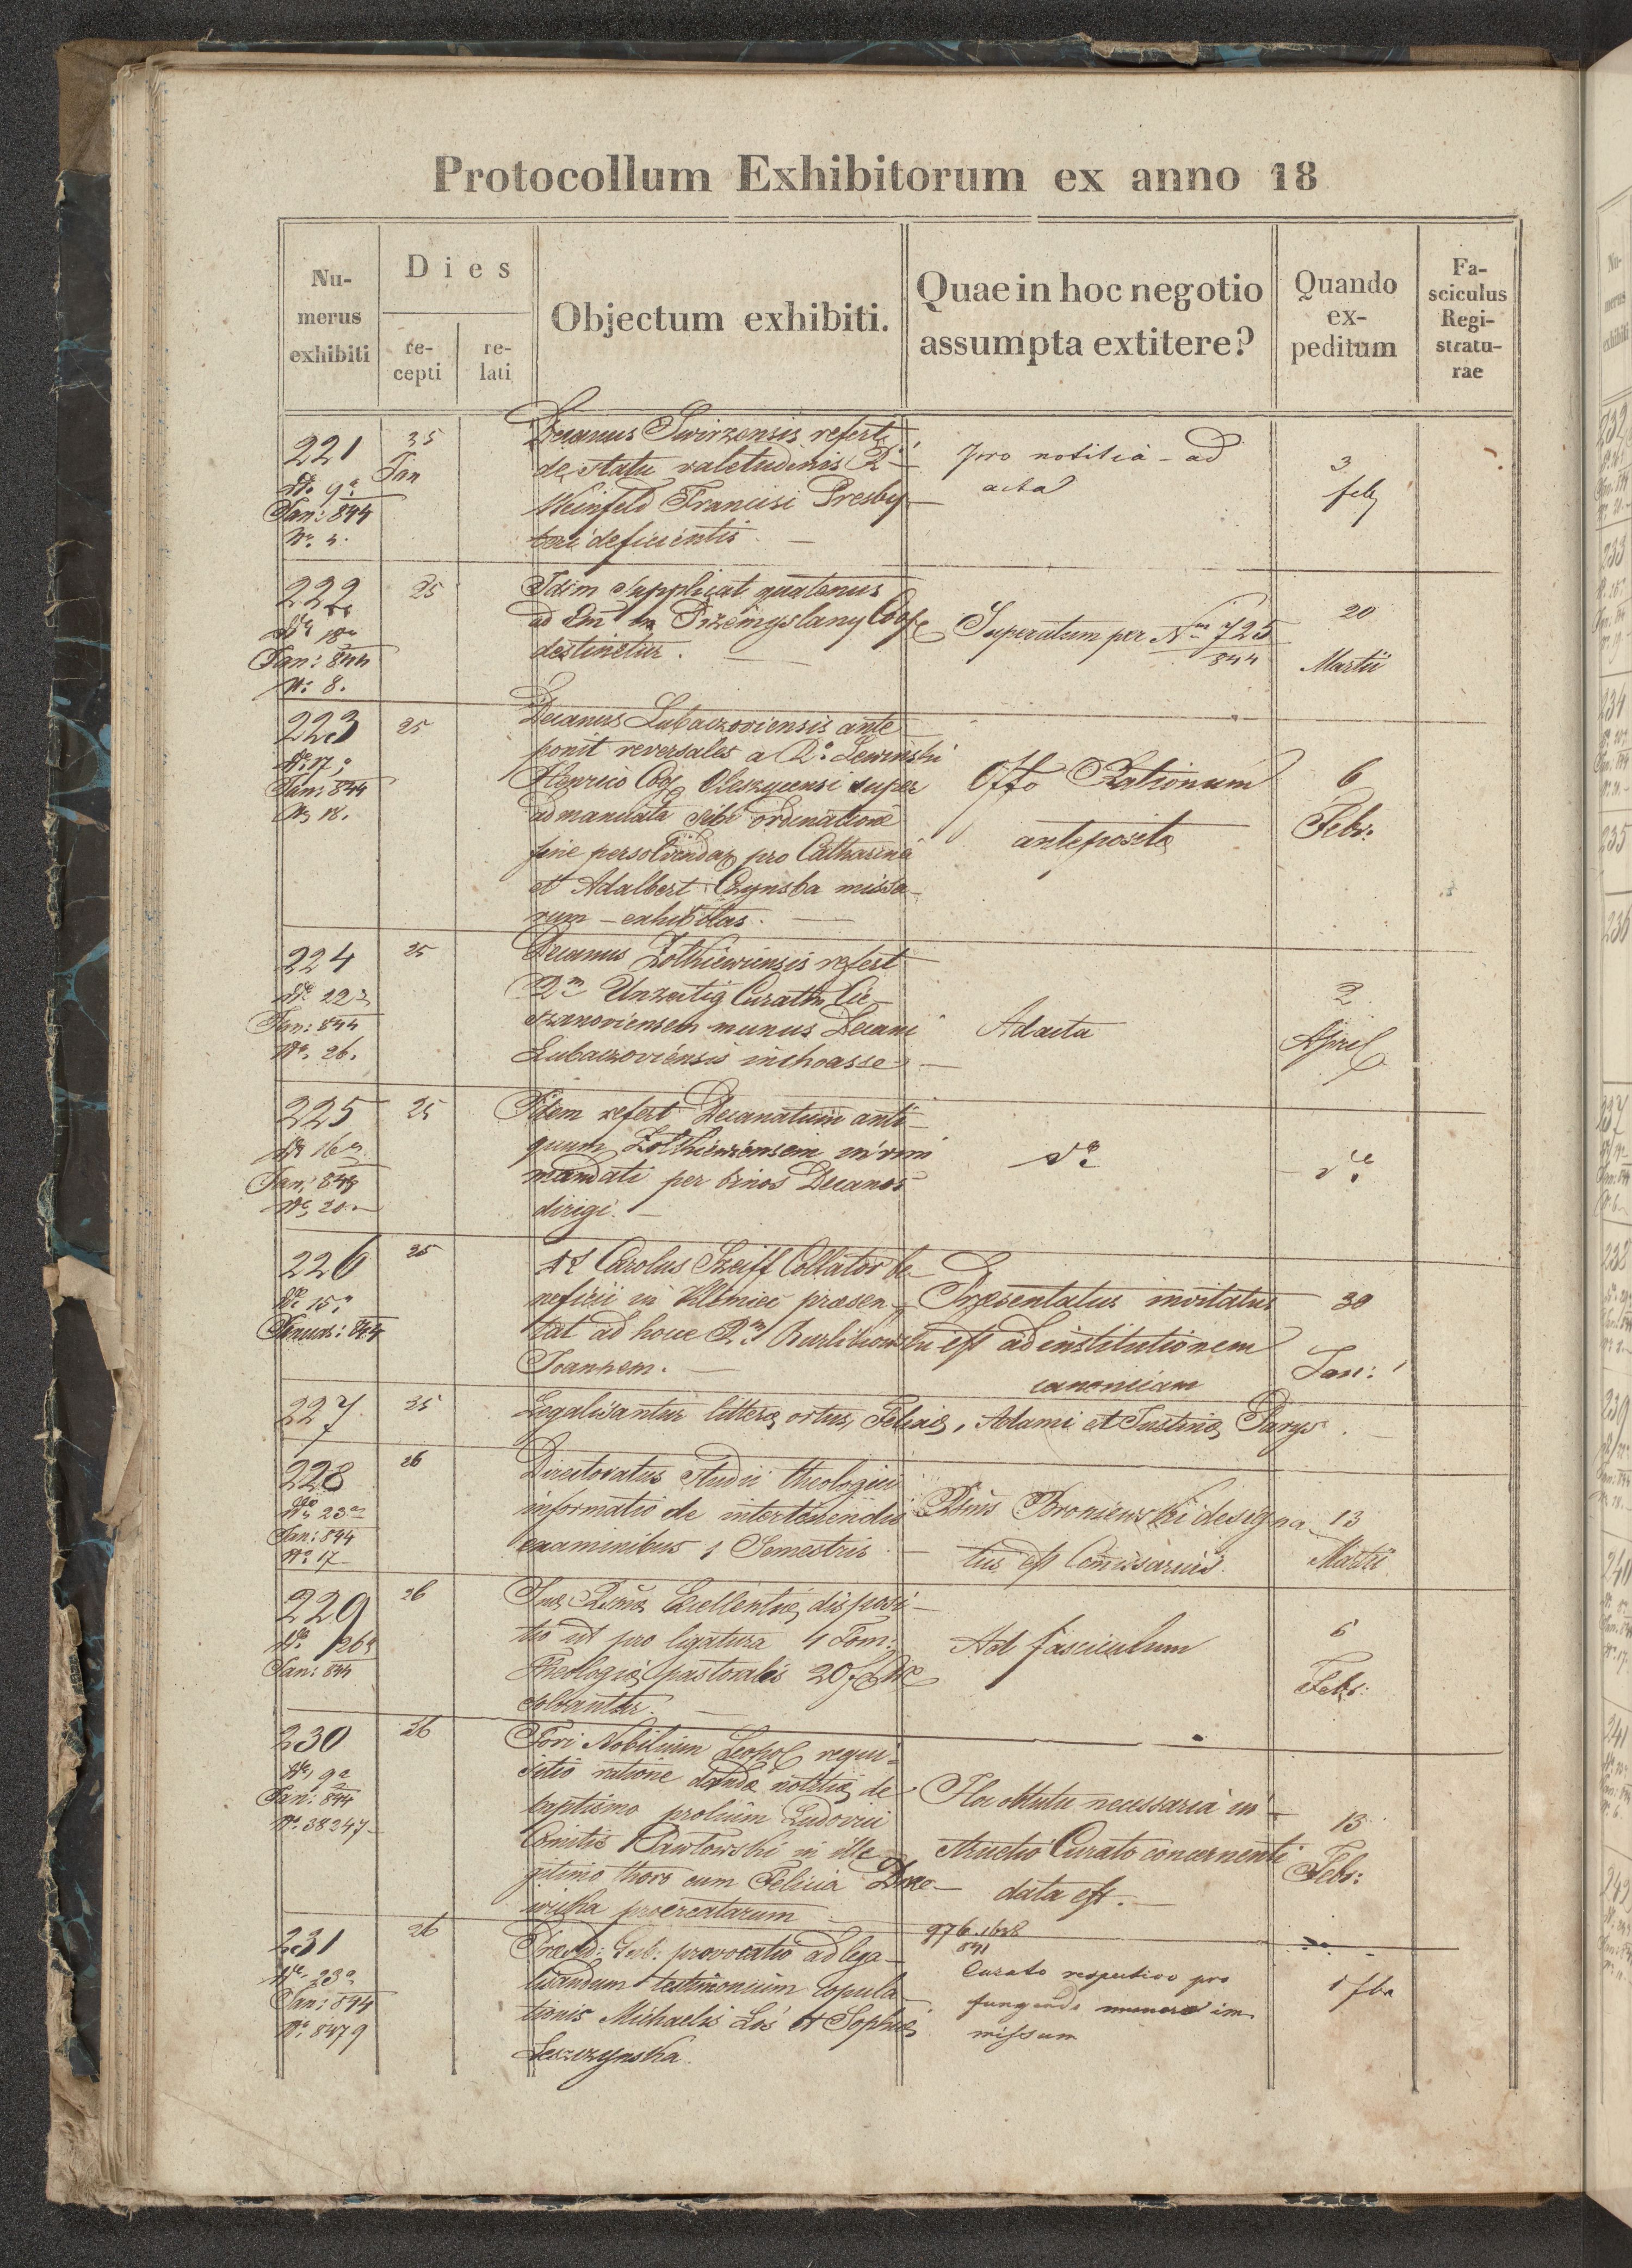 Protocollum Exhibitorum ex anno 18
Nu-
merus
exhibiti
Dies
re-
cepti
re-
lati
Objectum exhibiti.
Quae in hoc negotio
assumpta extitere?
Quando
ex-
peditum
Fa-
sciculus
Regi-
stratu-
rae
221
9a
Jan: 844
Nr. 4.
25
Jan
Decanus Swirzensis refert
de statu valetudinis R
Weinfeld Francisi Presby
teri deficientis
pro notitia - ad
acta
3
feb
222
18
Jan: 844
Nr. 8.
25
Idem supplicat quatenus
ad in Przemyslany Coop
destinetur.
Superatum per Num 725
844
20
Martii
223
17
Jan: 844
Nr 18.
25
Decanus Lubaczoviensis ante
ponit reversales a Ro Lewinski
Henrico Coop Oleszycensi super
admandata sibi ordinatione
fine persolvendar pro Catharina
et Adalbert Czynska missa
rum - exhibitas.
Offo Rationum
anteposita
6
Febr:
224
22
Jan: 844
Nr. 26.
25
Decanus Zolkiewiensis refert
Rm Unzeitig Curatum Cie
szanoviensem munus Decani
Lubaczoviensis inchoasse
Ad acta
2
April
225
16
Jan:
Nr 20
25
Idem refert Decanatum anti
quum Zolkieviensem in vim
mandati per binos Decanos
dirigi.
226
15
Januar: 844
25
Carolus Szeiff Collator be
neficii in Uhnieci praesen
tat ad hocce Rm
Joannem.
Praesentatus invitatus
est ad institutionem
canonicam
30
Jan:
227
25
Legalisantur litterae ortus, Felicis, Adami et Justinae Parys.
228
23
Jan: 844
Nr 17
26
Directoratus studii theologici
informatio de intertenendis
examinibus 1 Semestris
Rsmus Broniewski designa
tus est Comissarius.
13
Martii
229
26
Jan: 844
26
Suae Rsmae Excellentiae disposi
tio ut pro ligatura 4 Tom:
Theologiae pastoralis 20 f
solvantur.
Ad fasciculum
6
Febr:
230
9a
Jan: 844
Nr. 38247
26
Fori Nobilium Leopol requi
sitio ratione dandae notitiae de
baptismo prolium Ludovici
Comitis Pawlowski in ille
gitimo thoro cum Felicia Drze
wicka procreatarum
Hoc obtutu necessaria in
structio Curato concernenti
data est.
13
Febr:
231
23a
Jan: 844
Nr. 8479
26
Praesid: Gub: provocatio ad lega
lisandum testimonium copula
tionis Michaelis Łoś et Sophiae
Leszczynska.
Curato respectivo pro
fungende munere im
missum
1 fbr